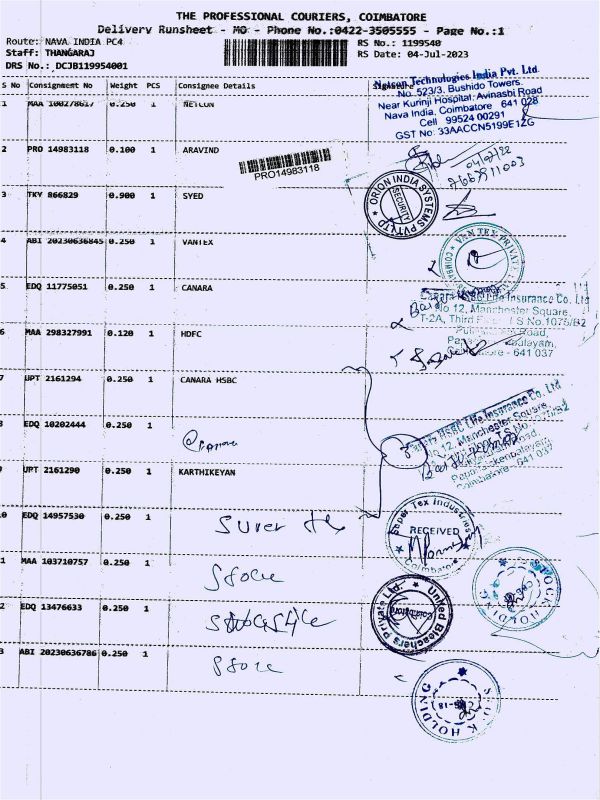 THE PROFESSIONAL COURIERS, COIMBATORE
Delivery Runsheet - MO - Phone No.:0422-3505555 - Page No.:1
Route: NAVA INDIA PC4
RS No.: 1199540
Staff: THANGARAJ
RS Date: 04-Jul-2023
DRS No.: DCJB119954001
S No Consignment No Weight PCS Consignee Details Signature
Netcon Technologies India Pvt. Ltd.
No. 523/3, Bushido Towers,
Near Kurinji Hospital, Avinashi Road
Nava India, Coimbatore 641 028
Cell 99524 00291
GST No: 33AACCN5199E1ZG
1 MAA 100278617 0.250 1 NETCON
2 PRO 14983118 0.100 1 ARAVIND
PRO14983118
7667911003
3 TKY 866829 0.900 1 SYED
ORION INDIA SYSTEMS PVT LTD
SECURITY
4 ABI 20230636845 0.250 1 VANTEX
VANTEX PRIVATE
5 EDQ 11775051 0.250 1 CANARA
Canara HSBC Life Insurance Co. Ltd
No 12, Manchester Square,
T-2A, Third Floor, S No.1075/B2
Road,
641 037
6 MAA 298327991 0.120 1 HDFC
7 UPT 2161294 0.250 1 CANARA HSBC
HSBC Life Insurance Co. Ltd
12, Manchester Square
Coimbatore - 641 037
8 EDQ 10202444 0.250 1
9 UPT 2161290 0.250 1 KARTHIKEYAN
10 EDQ 14957530 0.250 1 Super tex
Super Tex Industries
RECEIVED
Coimbatore
11 MAA 103710757 0.250 1 Stock
STOCK HOLDING
12 EDQ 13476633 0.250 1
United Bleachers Private Ltd.
Coimbatore
13 ABI 20230636786 0.250 1
HOLDING